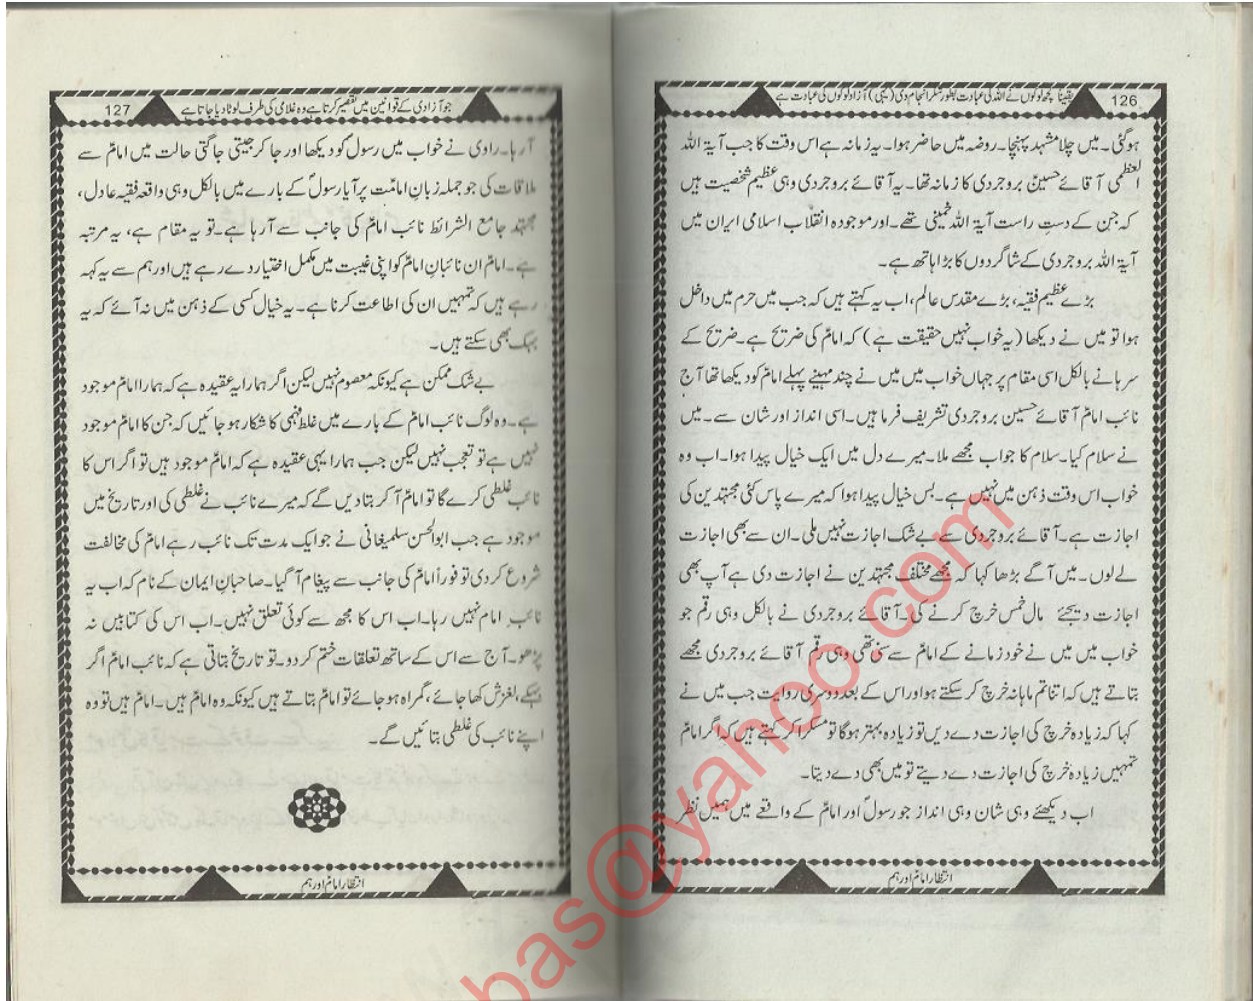 126
یقیناً کچھ لوگوں نے اللہ کی عبادت بطور شکر انجام دی (یہی) آزاد لوگوں کی عبادت ہے
ہوگئی۔ میں چلا مشہد پہنچا۔ روضہ میں حاضر ہوا۔ یہ زمانہ ہے اس وقت کا جب آیۃ اللہ
العظمی آقائے حسینؑ بروجردی کا زمانہ تھا۔ یہ آقائے بروجردی وہی عظیم شخصیت ہیں
کہ جن کے دستِ راست آیۃ اللہ خمینی تھے۔ اور موجودہ انقلاب اسلامی ایران میں
آیۃ اللہ بروجردی کے شاگردوں کا بڑا ہاتھ ہے۔
بڑے عظیم فقیہ، بڑے مقدس عالم، اب یہ کہتے ہیں کہ جب میں حرم میں داخل
ہوا تو میں نے دیکھا (یہ خواب نہیں حقیقت ہے) کہ امامؑ کی ضریح ہے۔ ضریح کے
سرہانے بالکل اسی مقام پر جہاں خواب میں میں نے چند مہینے پہلے امامؑ کو دیکھا تھا آج
نائب امامؑ آقائے حسین بروجردی تشریف فرما ہیں۔ اسی انداز اور شان سے۔ میں
نے سلام کیا۔ سلام کا جواب مجھے ملا۔ میرے دل میں ایک خیال پیدا ہوا۔ اب وہ
خواب اس وقت ذہن میں نہیں ہے۔ بس خیال پیدا ہوا کہ میرے پاس کئی مجتہدین کی
اجازت ہے۔ آقائے بروجردی سے بے شک اجازت نہیں ملی۔ ان سے بھی اجازت
لے لوں۔ میں آگے بڑھا کہا کہ مجھے مختلف مجتہدین نے اجازت دی ہے آپ بھی
اجازت دیجئے مال خمس خرچ کرنے کی۔ آقائے بروجردی نے بالکل وہی رقم جو
خواب میں میں نے خود زمانے کے امامؑ سے سنی تھی وہی رقم آقائے بروجردی مجھے
بتاتے ہیں کہ اتنا تم ماہانہ خرچ کر سکتے ہو اور اس کے بعد دوسری روایت جب میں نے
کہا کہ زیادہ خرچ کی اجازت دے دیں تو زیادہ بہتر ہوگا تو مسکرا کر کہتے ہیں کہ اگر امامؑ
تمہیں زیادہ خرچ کی اجازت دے دیتے تو میں بھی دے دیتا۔
اب دیکھئے وہی شان وہی انداز جو رسولؐ اور امامؑ کے واقعے میں ہمیں نظر
انتظار امامؑ اور ہم
127
جو آزادی کے قوانین میں تقصیر کرتا ہے وہ غلامی کی طرف لوٹا دیا جاتا ہے
آرہا۔ راوی نے خواب میں رسولؐ کو دیکھا اور جا کر جیتی جاگتی حالت میں امامؑ سے
ملاقات کی جو جملہ زبانِ امامؑت پر آیا رسولؐ کے بارے میں بالکل وہی واقعہ فقیہ عادل،
مجتہد جامع الشرائط نائب امامؑ کی جانب سے آرہا ہے۔ تو یہ مقام ہے، یہ مرتبہ
ہے۔ امامؑ ان نائبانِ امامؑ کو اپنی غیبت میں مکمل اختیار دے رہے ہیں اور ہم سے یہ کہہ
رہے ہیں کہ تمہیں ان کی اطاعت کرنا ہے۔ یہ خیال کسی کے ذہن میں نہ آئے کہ یہ
بہک بھی سکتے ہیں۔
بے شک ممکن ہے کیونکہ معصوم نہیں لیکن اگر ہمارا یہ عقیدہ ہے کہ ہمارا امامؑ موجود
ہے۔ وہ لوگ نائب امامؑ کے بارے میں غلط فہمی کا شکار ہو جائیں کہ جن کا امامؑ موجود
نہیں ہے تو تعجب نہیں لیکن جب ہمارا یہی عقیدہ ہے کہ امامؑ موجود ہیں تو اگر اس کا
نائب غلطی کرے گا تو امامؑ آ کر بتا دیں گے کہ میرے نائب نے غلطی کی اور تاریخ میں
موجود ہے جب ابوالحسن سلمیغانی نے جو ایک مدت تک نائب رہے امامؑ کی مخالفت
شروع کر دی تو فوراً امامؑ کی جانب سے پیغام آگیا۔ صاحبانِ ایمان کے نام کہ اب یہ
نائب امام نہیں رہا۔ اب اس کا مجھ سے کوئی تعلق نہیں۔ اب اس کی کتابیں نہ
پڑھو۔ آج سے اس کے ساتھ تعلقات ختم کر دو۔ تو تاریخ بتاتی ہے کہ نائب امامؑ اگر
بہکے، لغزش کھا جائے، گمراہ ہو جائے تو امامؑ بتاتے ہیں کیونکہ وہ امامؑ ہیں۔ امامؑ ہیں تو وہ
اپنے نائب کی غلطی بتائیں گے۔
انتظار امامؑ اور ہم
bas@yahoo.com